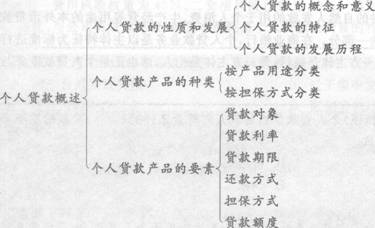 个人贷款概述
个人贷款的性质和发展
个人贷款的概念和意义
个人贷款的特征
个人贷款的发展历程
个人贷款产品的种类
按产品用途分类
按担保方式分类
个人贷款产品的要素
贷款对象
贷款利率
贷款期限
还款方式
担保方式
贷款额度